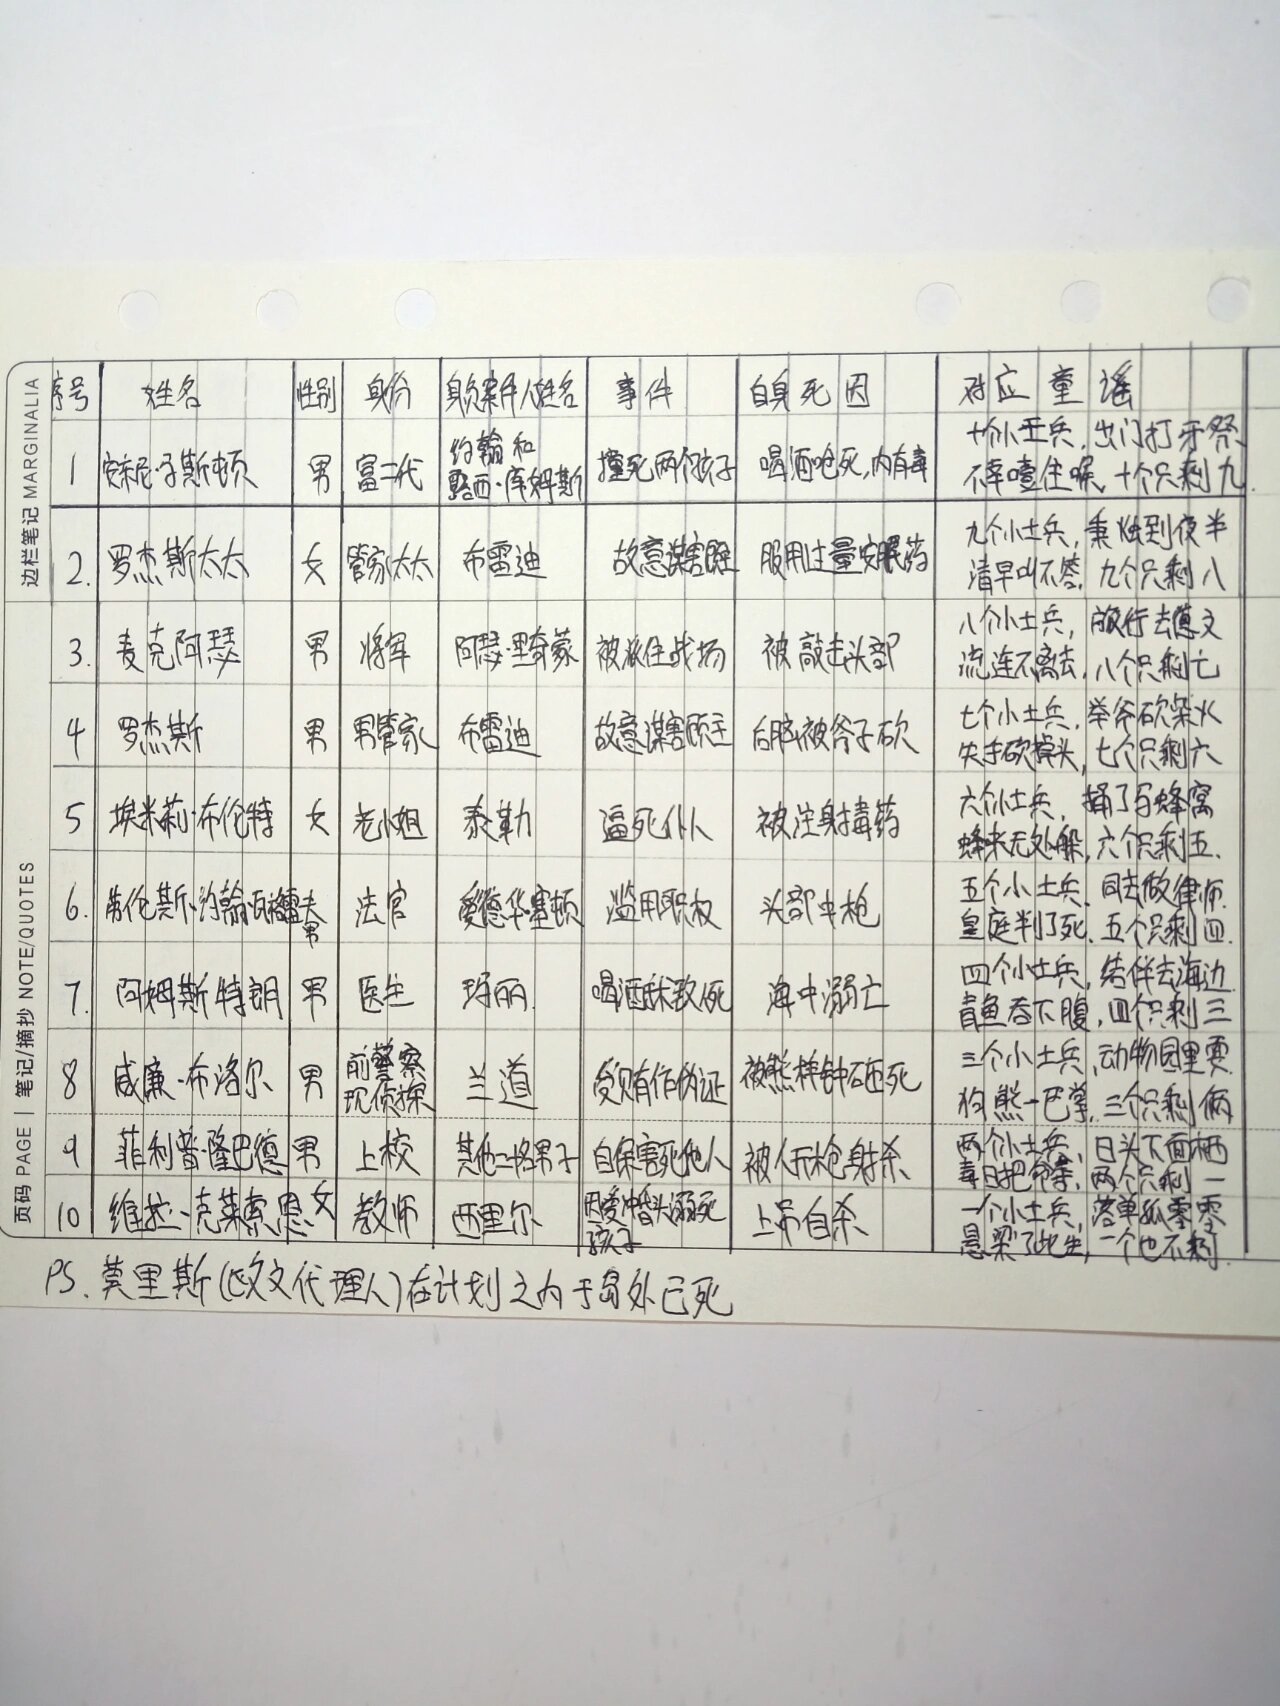 边栏笔记 MARGINALIA
页码 PAGE | 笔记/摘抄 NOTE/QUOTES
序号 姓名 性别 身份 身负案件人姓名 事件 自身死因 对应童谣
1 安东尼·马斯顿 男 富二代 约翰和露西·库姆斯 撞死两个孩子 喝酒呛死,内有毒 十个小士兵,出门打牙祭
不幸噎住喉,十个只剩九
2. 罗杰斯太太 女 管家太太 布雷迪 故意谋害 服用过量安眠药 九个小士兵,秉烛到夜半
清早叫不答,九个只剩八
3. 麦克阿瑟 男 将军 阿瑟·里奇蒙 被派往战场 被敲击头部 八个小士兵,旅行去德文
流连不离去,八个只剩七
4 罗杰斯 男 男管家 布雷迪 故意谋害雇主 后脑被斧子砍 七个小士兵,举斧砍柴火
失手砍掉头,七个只剩六
5 埃米莉·布伦特 女 老小姐 泰勒 逼死仆人 被注射毒药 六个小士兵,捅了马蜂窝
蜂来无处躲,六个只剩五.
6. 劳伦斯·约翰·瓦格雷夫 男 法官 爱德华·塞顿 滥用职权 头部中枪 五个小士兵,同去做律师.
皇庭判了死,五个只剩四.
7. 阿姆斯特朗 男 医生 玛丽. 喝酒手术致死 海中溺亡 四个小士兵,结伴去海边
青鱼吞下腹,四个只剩三
8 威廉·布洛尔 男 前警察现侦探 兰道 受贿作伪证 被熊样钟砸死 三个小士兵,动物园里耍.
狗熊一巴掌,三个只剩俩
9 菲利普·隆巴德 男 上校 其他二十名男子 自保害死他人 被人开枪射杀 两个小士兵,日头下面栖
毒日把命索,两个只剩一
10 维拉·克莱索恩 女 教师 西里尔 因爱冲昏头溺死孩子 上吊自杀 一个小士兵,落单孤零零
悬梁了此生,一个也不剩.
PS. 莫里斯(欧文代理人)在计划之内于岛外已死